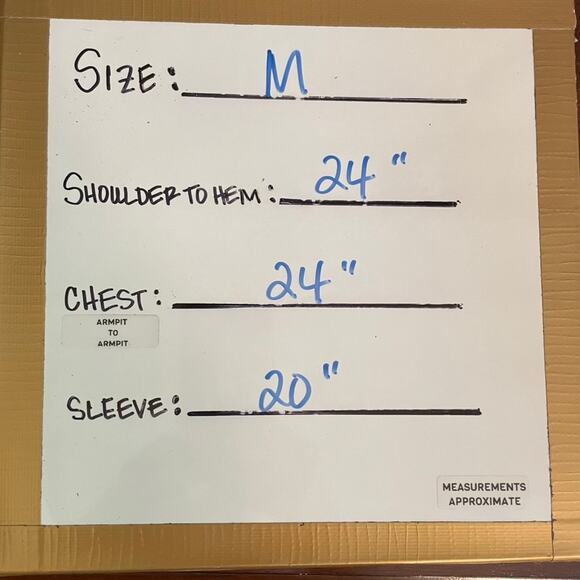 SIZE: M
SHOULDER TO HEM: 24"
CHEST: 24"
ARMPIT
TO
ARMPIT
SLEEVE: 20"
MEASUREMENTS
APPROXIMATE